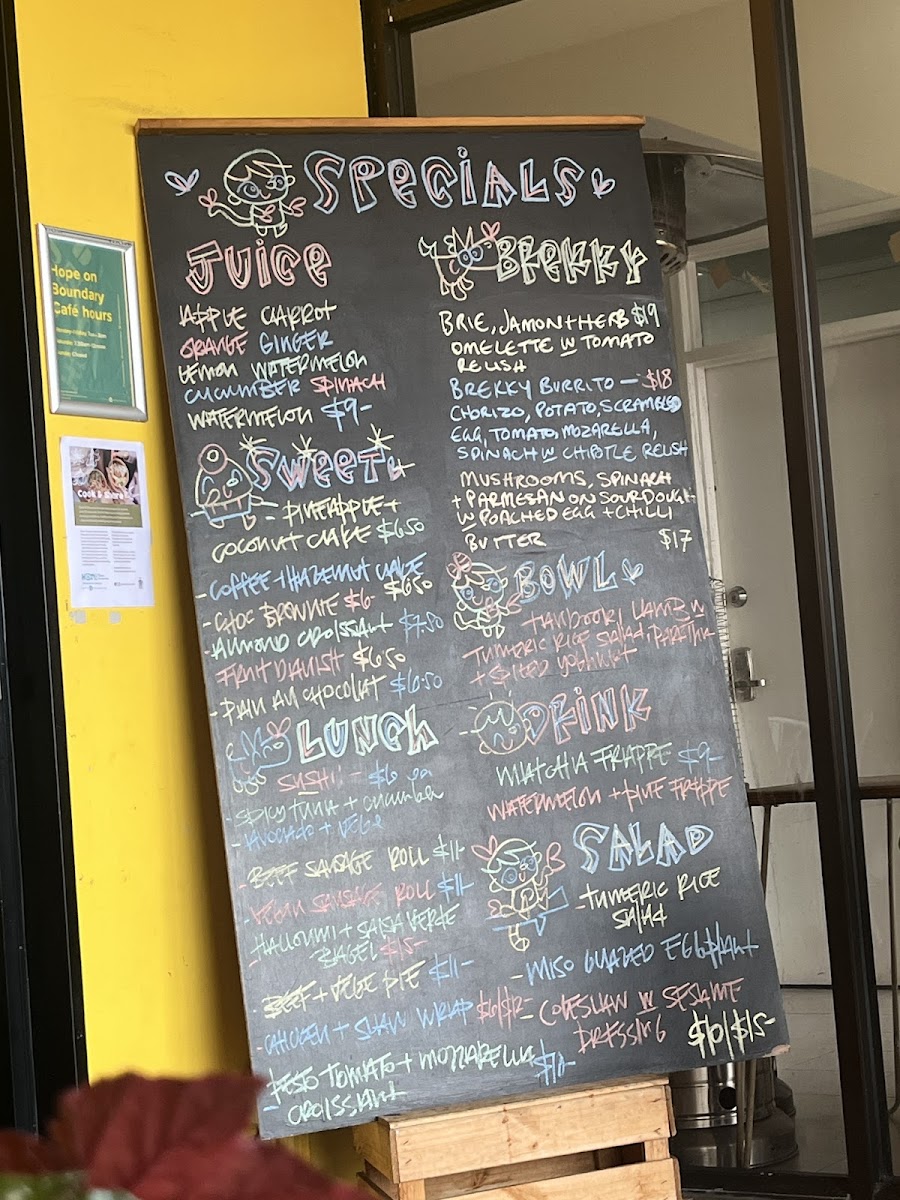 SPECIALS
JUICE
APPLE CARROT
ORANGE GINGER
LEMON WATERMELON
CUCUMBER SPINACH
WATERMELON $9-
SWEET
- PINEAPPLE +
COCONUT CAKE $6.50
- COFFEE + HAZELNUT CAKE
$6.50
- CHOC BROWNIE $6-
- ALMOND CROISSANT $7.50
- FRUIT DANISH $6.50
- PAIN AU CHOCOLAT $6.50
LUNCH
SUSHI - $6 ea
- SPICY TUNA + CUCUMBER
- AVOCADO + VEGE
- BEEF SAUSAGE ROLL $11-
- VEGAN SAUSAGE ROLL $11-
- HALLOUMI + SALSA VERDE
BAGEL $15-
- BEEF + VEGE PIE $11-
- CHICKEN + SLAW WRAP
- PESTO TOMATO + MOZZARELLA
CROISSANT $10-
BREKKY
BRIE, JAMON + HERB $19
OMELETTE W TOMATO
RELISH
BREKKY BURRITO - $18
CHORIZO, POTATO, SCRAMBLED
EGG, TOMATO, MOZARELLA,
SPINACH W CHIPOTLE RELISH
MUSHROOMS, SPINACH
+ PARMESAN ON SOURDOUGH
W POACHED EGG + CHILLI
BUTTER $17
BOWL
TANDOORI LAMB W
TUMERIC RICE SALAD, PARATHA
+ SPICED YOGHURT
DRINK
MATCHA FRAPPE $9-
WATERMELON + LIME FRAPPE
SALAD
- TUMERIC RICE
SALAD
- MISO GLAZED EGGPLANT
- COLESLAW W SESAME
DRESSING $10/$15-
Hope on
Boundary
Café hours
Cook & Share